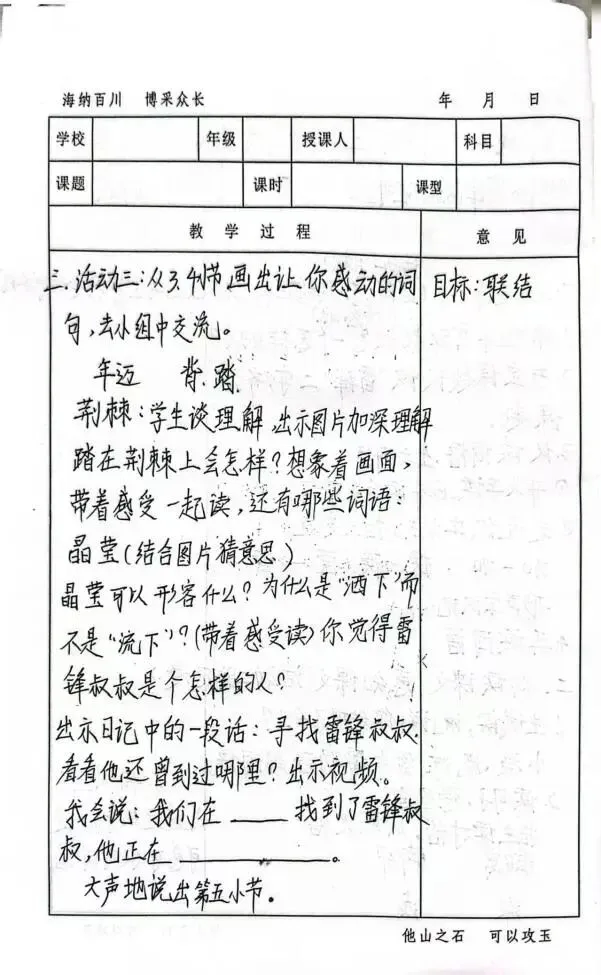 海纳百川 博采众长 年 月 日
学校 年级 授课人 科目
课题 课时 课型
教 学 过 程 意 见
三.活动三:从3.4小节画出让你感动的词 目标:联结
句,去小组中交流。
年迈 背.踏
荆棘:学生谈理解,出示图片加深理解
踏在荆棘上会怎样?想象着画面,
带着感受一起读,还有哪些词语:
晶莹(结合图片猜意思)
晶莹可以形容什么?为什么是“洒下”而
不是“流下”?(带着感受读)你觉得雷
锋叔叔是个怎样的人?
出示日记中的一段话:寻找雷锋叔叔.
看看他还曾到过哪里?出示视频。
我会说:我们在____找到了雷锋叔
叔,他正在__________。
大声地说出第五小节。
他山之石 可以攻玉